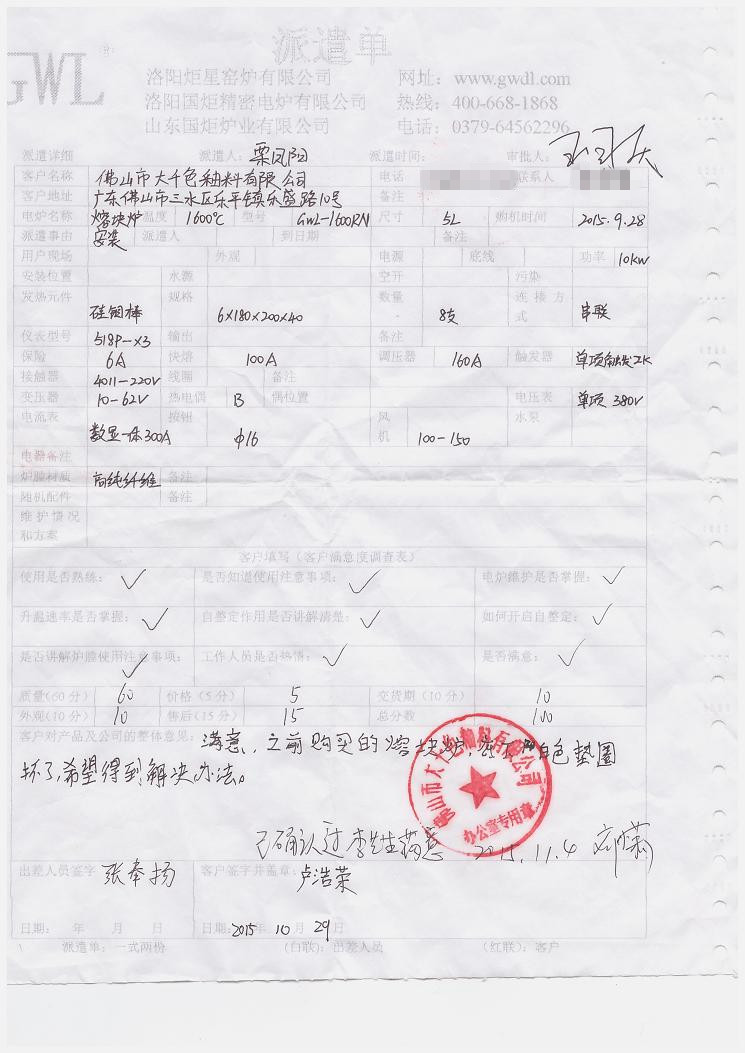 派遣单
GWL
洛阳炬星窑炉有限公司 网址：www.gwdl.com
洛阳国炬精密电炉有限公司 热线：400-668-1868
山东国炬炉业有限公司 电话：0379-64562296
派遣详细 派遣人：栗凤阳 派遣时间： 审批人：
客户名称 佛山市大千色釉料有限公司 电话 联系人
客户地址 广东佛山市三水区乐平镇乐盛路10号 备注
电炉名称 熔块炉 温度 1600℃ 型号 GWL-1600RN 尺寸 5L 购机时间 2015.9.28
派遣事由 安装 派遣人 到日期 备注
用户现场 外观 电源 底线 功率 10KW
安装位置 水源 空开 污染
发热元件 硅钼棒 规格 6×180×200×40 数量 8支 连接方式 串联
仪表型号 518P-X3 输出 备注
保险 6A 快熔 100A 调压器 160A 触发器 单项触发ZK
接触器 4011-220V 线圈 备注
变压器 10-62V 热电偶 B 偶位置 电压表 单项 380V
电流表 数显一体300A 按钮 φ16 风机 100-150 水泵
电器备注
炉膛材质 高纯纤维 备注
随机配件 备注
维护情况和方案
客户填写（客户满意度调查表）
使用是否熟练：✓ 是否知道使用注意事项：✓ 电炉维护是否掌握：✓
升温速率是否掌握：✓ 自整定作用是否讲解清楚：✓ 如何开启自整定：✓
是否讲解炉膛使用注意事项：✓ 工作人员是否热情：✓ 是否满意：✓
质量(60分) 60 价格（5分） 5 交货期（10分） 10
外观(10分) 10 售后(15分) 15 总分数 100
客户对产品及公司的整体意见：满意，之前购买的熔块炉，白色垫圈
坏了，希望得到解决办法。
佛山市大千色釉料有限公司
办公室专用章
已确认过李先生 2015.11.4
出差人员签字 张奉扬 客户签字并盖章：卢浩荣
日期： 年 月 日 日期：2015年 10月 29日
派遣单：一式两份 （白联）：出差人员 （红联）：客户